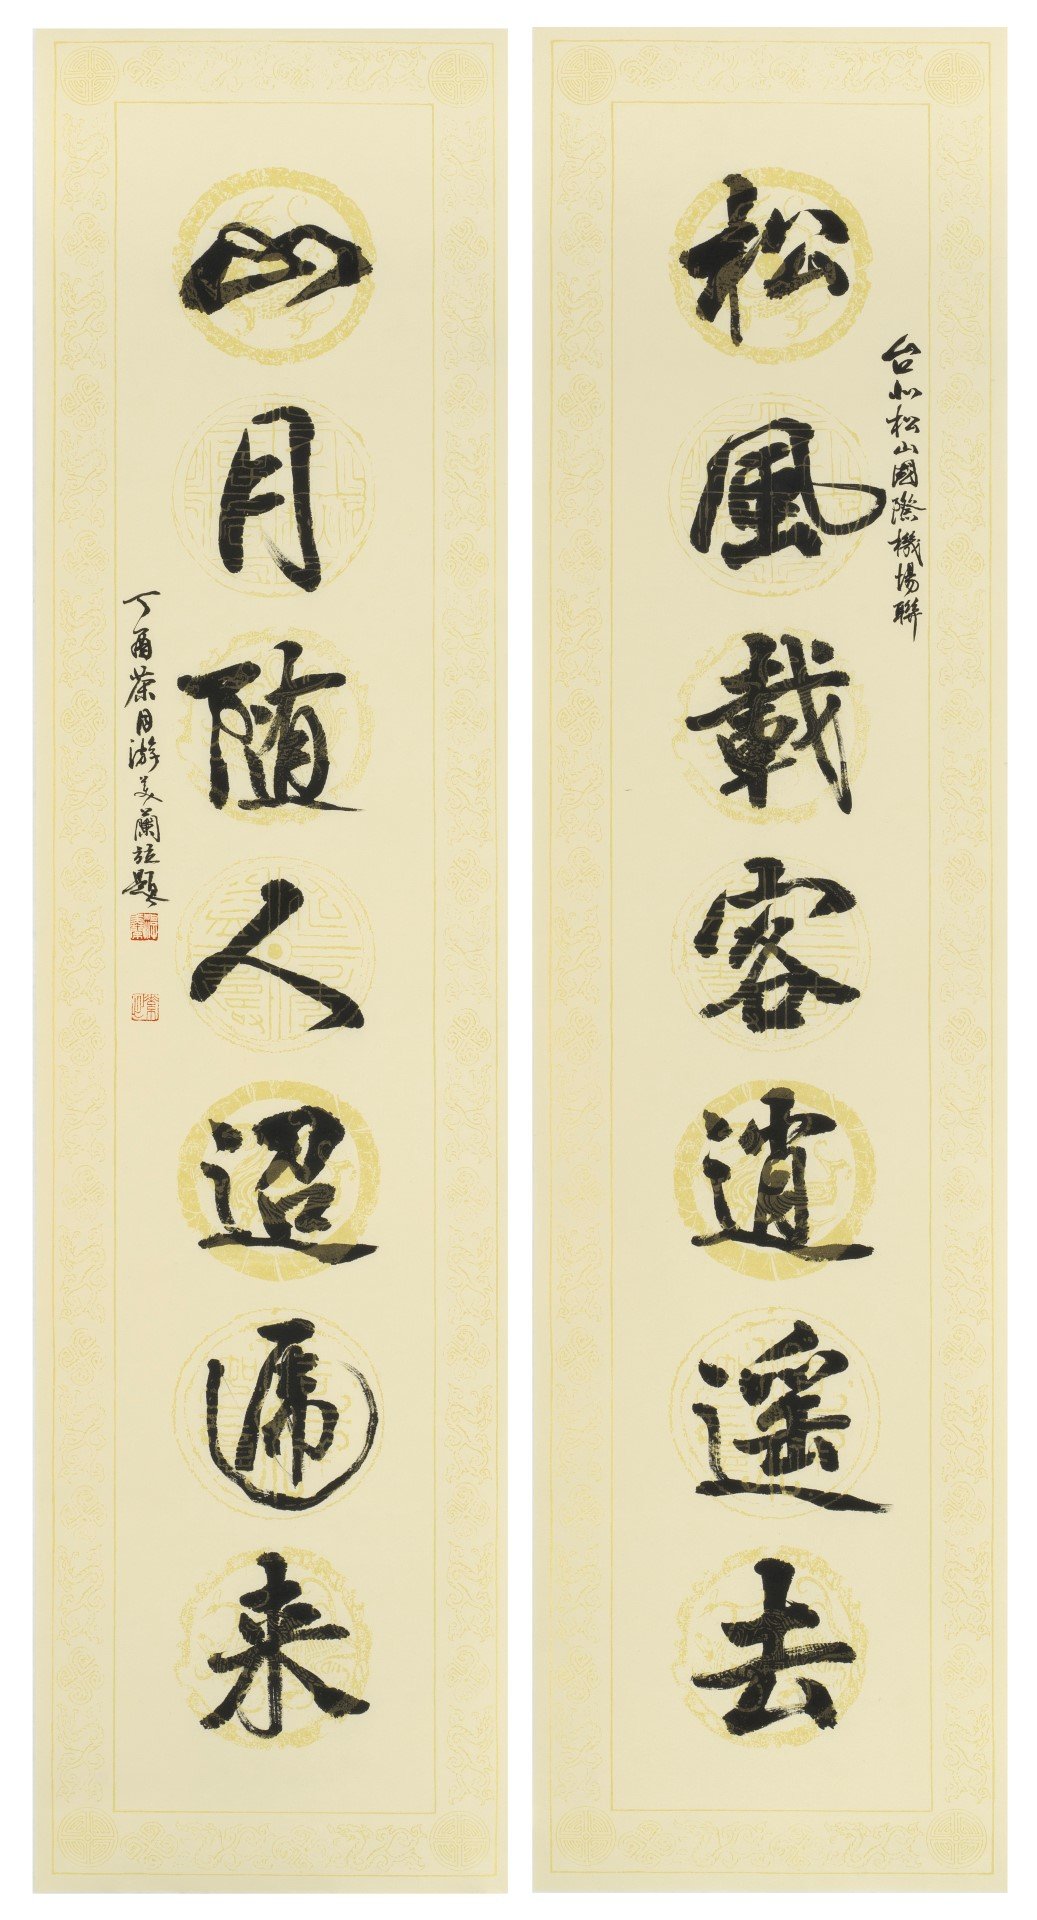 台北松山國際機場聯
松風載客逍遥去
山月随人迢遞来
丁酉荼月游美蘭題